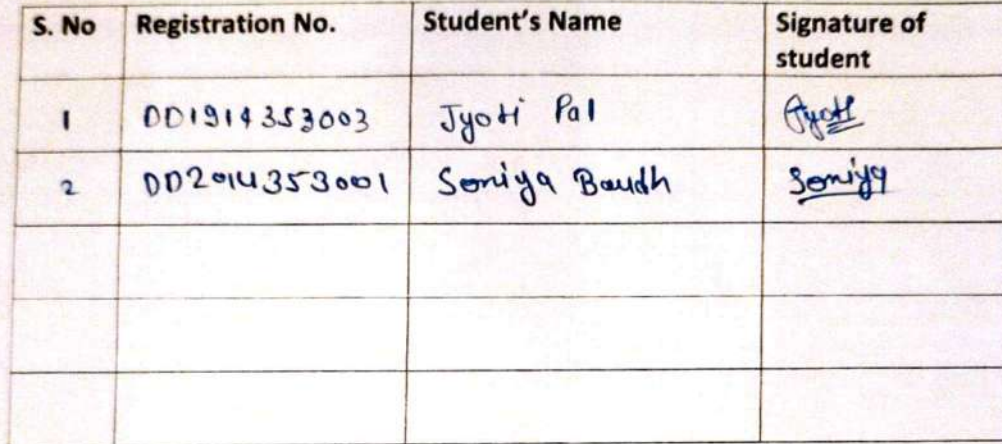 S. No Registration No. Student's Name Signature of student
1 DD1914353003 Jyoti Pal Jyoti
2 DD2014353001 Soniya Baudh Soniya